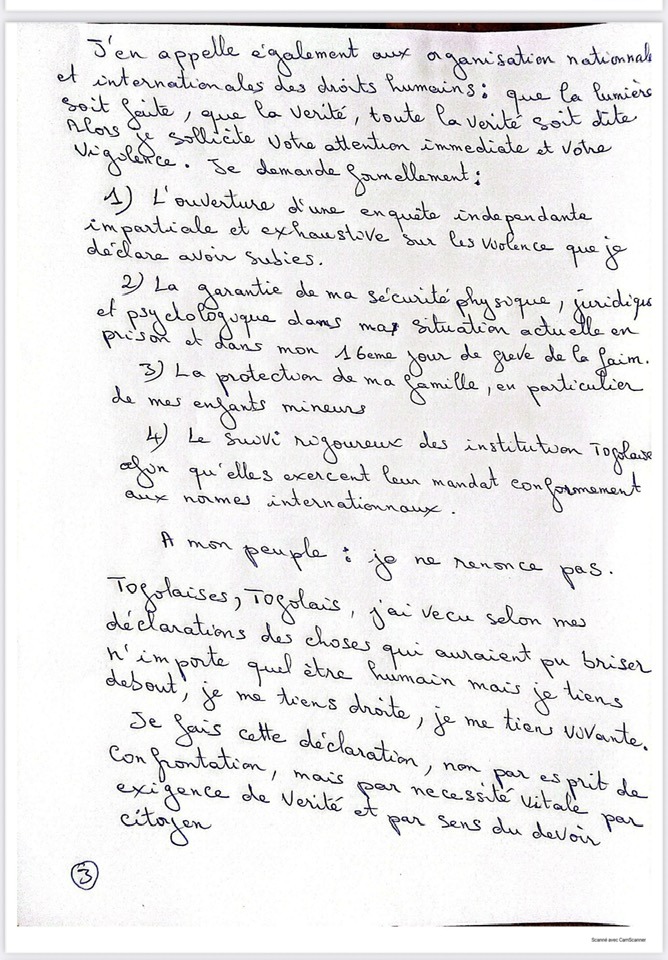 J'en appelle également aux organisation nationnal
et internationales des droits humains: que la lumière
soit faite, que la verité, toute la verité soit dite
Alors je sollicite votre attention immediate et votre
vigolence. Je demande formellement:
1) L'ouverture d'une enquête independante
impartiale et exhaustive sur les violence que je
déclare avoir subies.
2) La garantie de ma sécurité physique, juridique
et psychologique dams ma situation actuelle en
prison et dans mon 16eme jour de greve de la faim.
3) La protection de ma famille, en particulier
de mes enfants mineurs
4) Le suivi rigoureux des institution Togolaise
afin qu'elles exercent leur mandat conformement
aux normes internationnaux.
A mon peuple: je ne renonce pas.
Togolaises, Togolais, j'ai vecu selon mes
déclarations des choses qui auraient pu briser
n'importe quel être humain mais je tiens
debout, je me tiens droite, je me tiens vivante.
Je fais cette déclaration, non par esprit de
confrontation, mais par necessité vitale par
exigence de verité et par sens du devoir
citoyen
3
Scanné avec CamScanner